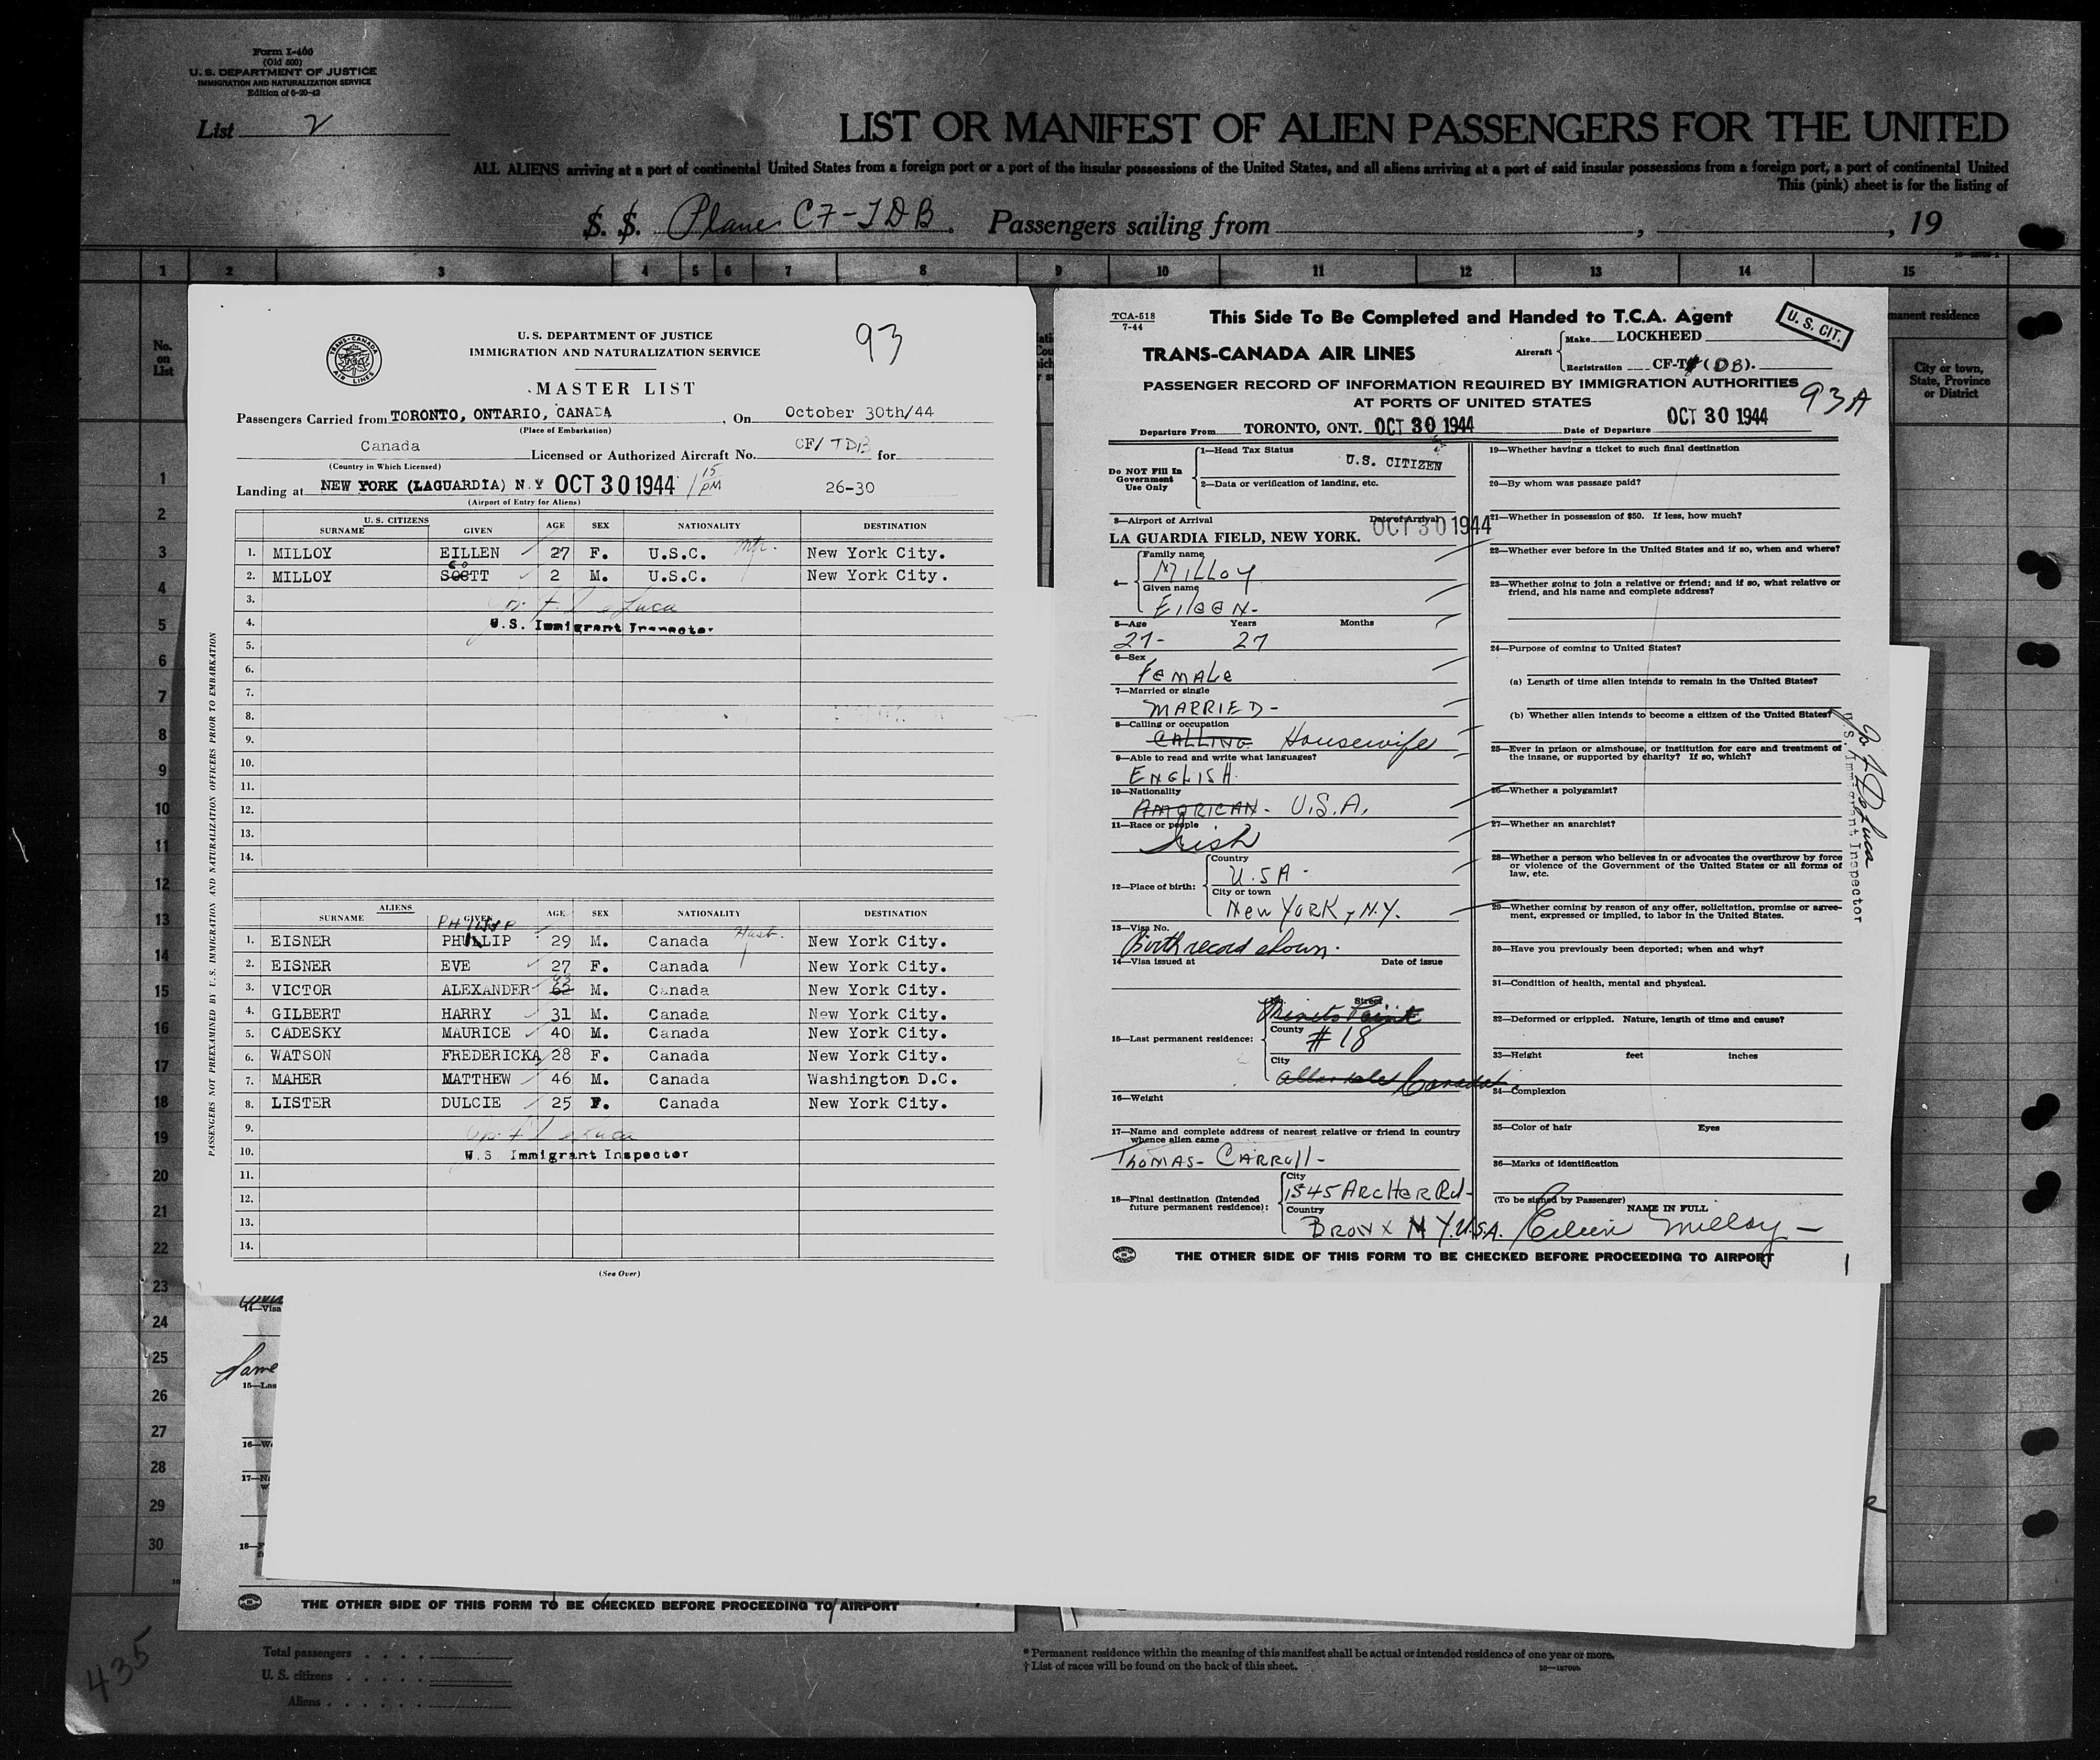 Form I-400
(Old 500)
U. S. DEPARTMENT OF JUSTICE
IMMIGRATION AND NATURALIZATION SERVICE
Edition of 6-20-42
List 2
LIST OR MANIFEST OF ALIEN PASSENGERS FOR THE UNITED
ALL ALIENS arriving at a port of continental United States from a foreign port or a port of the insular possessions of the United States, and all aliens arriving at a port of said insular possessions from a foreign port, a port of continental United
This (pink) sheet is for the listing of
S. S. Plane CF-TDB. Passengers sailing from , , 19
1 2 3 4 5 6 7 8 9 10 11 12 13 14 15
No. on List
manent residence
City or town, State, Province or District
1
2
3
4
5
6
7
8
9
10
11
12
13
14
15
16
17
18
19
20
21
22
23
24
25
26
27
28
29
30
TRANS-CANADA AIR LINES
U. S. DEPARTMENT OF JUSTICE
IMMIGRATION AND NATURALIZATION SERVICE
93
MASTER LIST
Passengers Carried from TORONTO, ONTARIO, CANADA, On October 30th/44
(Place of Embarkation)
Canada Licensed or Authorized Aircraft No. CF/ TDB for
(Country in Which Licensed)
Landing at NEW YORK (LAGUARDIA) N.Y OCT 30 1944 1 15 PM 26-30
(Airport of Entry for Aliens)
U. S. CITIZENS
SURNAME GIVEN AGE SEX NATIONALITY DESTINATION
1. MILLOY EILLEN 27 F. U.S.C. Mtr. New York City.
2. MILLOY SCOTT 2 M. U.S.C. New York City.
3.
4. U.S. Immigrant Inspector
5.
6.
7.
8.
9.
10.
11.
12.
13.
14.
PASSENGERS NOT PREEXAMINED BY U.S. IMMIGRATION AND NATURALIZATION OFFICERS PRIOR TO EMBARKATION
ALIENS
SURNAME GIVEN AGE SEX NATIONALITY DESTINATION
PHILIP
1. EISNER PHILLIP 29 M. Canada Hust. New York City.
2. EISNER EVE 27 F. Canada New York City.
3. VICTOR ALEXANDER 62 63 M. Canada New York City.
4. GILBERT HARRY 31 M. Canada New York City.
5. CADESKY MAURICE 40 M. Canada New York City.
6. WATSON FREDERICKA 28 F. Canada New York City.
7. MAHER MATTHEW 46 M. Canada Washington D.C.
8. LISTER DULCIE 25 F. Canada New York City.
9.
10. U.S Immigrant Inspector
11.
12.
13.
14.
(See Over)
TCA-518
7-44
This Side To Be Completed and Handed to T.C.A. Agent
U. S. CIT.
TRANS-CANADA AIR LINES
Aircraft Make LOCKHEED
Registration CF-T (DB).
PASSENGER RECORD OF INFORMATION REQUIRED BY IMMIGRATION AUTHORITIES
AT PORTS OF UNITED STATES
93A
Departure From TORONTO, ONT. OCT 30 1944 Date of Departure OCT 30 1944
Do NOT Fill In Government Use Only
1—Head Tax Status U.S. CITIZEN
2—Data or verification of landing, etc.
3—Airport of Arrival Date of Arrival
LA GUARDIA FIELD, NEW YORK. OCT 30 1944
4— Family name
MILLOY
Given name
EileeN-
5—Age Years Months
27- 27
6—Sex
FeMALe
7—Married or single
MARRIED-
8—Calling or occupation
CALLING Housewife
9—Able to read and write what languages?
ENGLISH.
10—Nationality
AMERICAN- U.S.A.
11—Race or people
Irish
12—Place of birth: Country
U.SA-
City or town
New YORK, N.Y.
13—Visa No.
Birth record shown.
14—Visa issued at Date of issue
15—Last permanent residence: No. Street
County
# 18
City
Allandale Canada
16—Weight
17—Name and complete address of nearest relative or friend in country whence alien came
THOMAS- CARROLL-
18—Final destination (Intended future permanent residence): City
1545 ARCHER Rd-
Country
BRONX N Y.U.S.A.
19—Whether having a ticket to such final destination
20—By whom was passage paid?
21—Whether in possession of $50. If less, how much?
22—Whether ever before in the United States and if so, when and where?
23—Whether going to join a relative or friend; and if so, what relative or friend, and his name and complete address?
24—Purpose of coming to United States?
(a) Length of time alien intends to remain in the United States?
(b) Whether alien intends to become a citizen of the United States?
25—Ever in prison or almshouse, or institution for care and treatment of the insane, or supported by charity? If so, which?
26—Whether a polygamist?
27—Whether an anarchist?
28—Whether a person who believes in or advocates the overthrow by force or violence of the Government of the United States or all forms of law, etc.
29—Whether coming by reason of any offer, solicitation, promise or agreement, expressed or implied, to labor in the United States.
30—Have you previously been deported; when and why?
31—Condition of health, mental and physical.
32—Deformed or crippled. Nature, length of time and cause?
33—Height feet inches
34—Complexion
35—Color of hair Eyes
36—Marks of identification
(To be signed by Passenger) NAME IN FULL
Eileen Milloy—
U.S. Immigrant Inspector
THE OTHER SIDE OF THIS FORM TO BE CHECKED BEFORE PROCEEDING TO AIRPORT
1
14—Visa
Same
15—Las
16—W
17—N
18—F
THE OTHER SIDE OF THIS FORM TO BE CHECKED BEFORE PROCEEDING TO AIRPORT
435
Total passengers
U. S. citizens
Aliens
* Permanent residence within the meaning of this manifest shall be actual or intended residence of one year or more.
† List of races will be found on the back of this sheet.